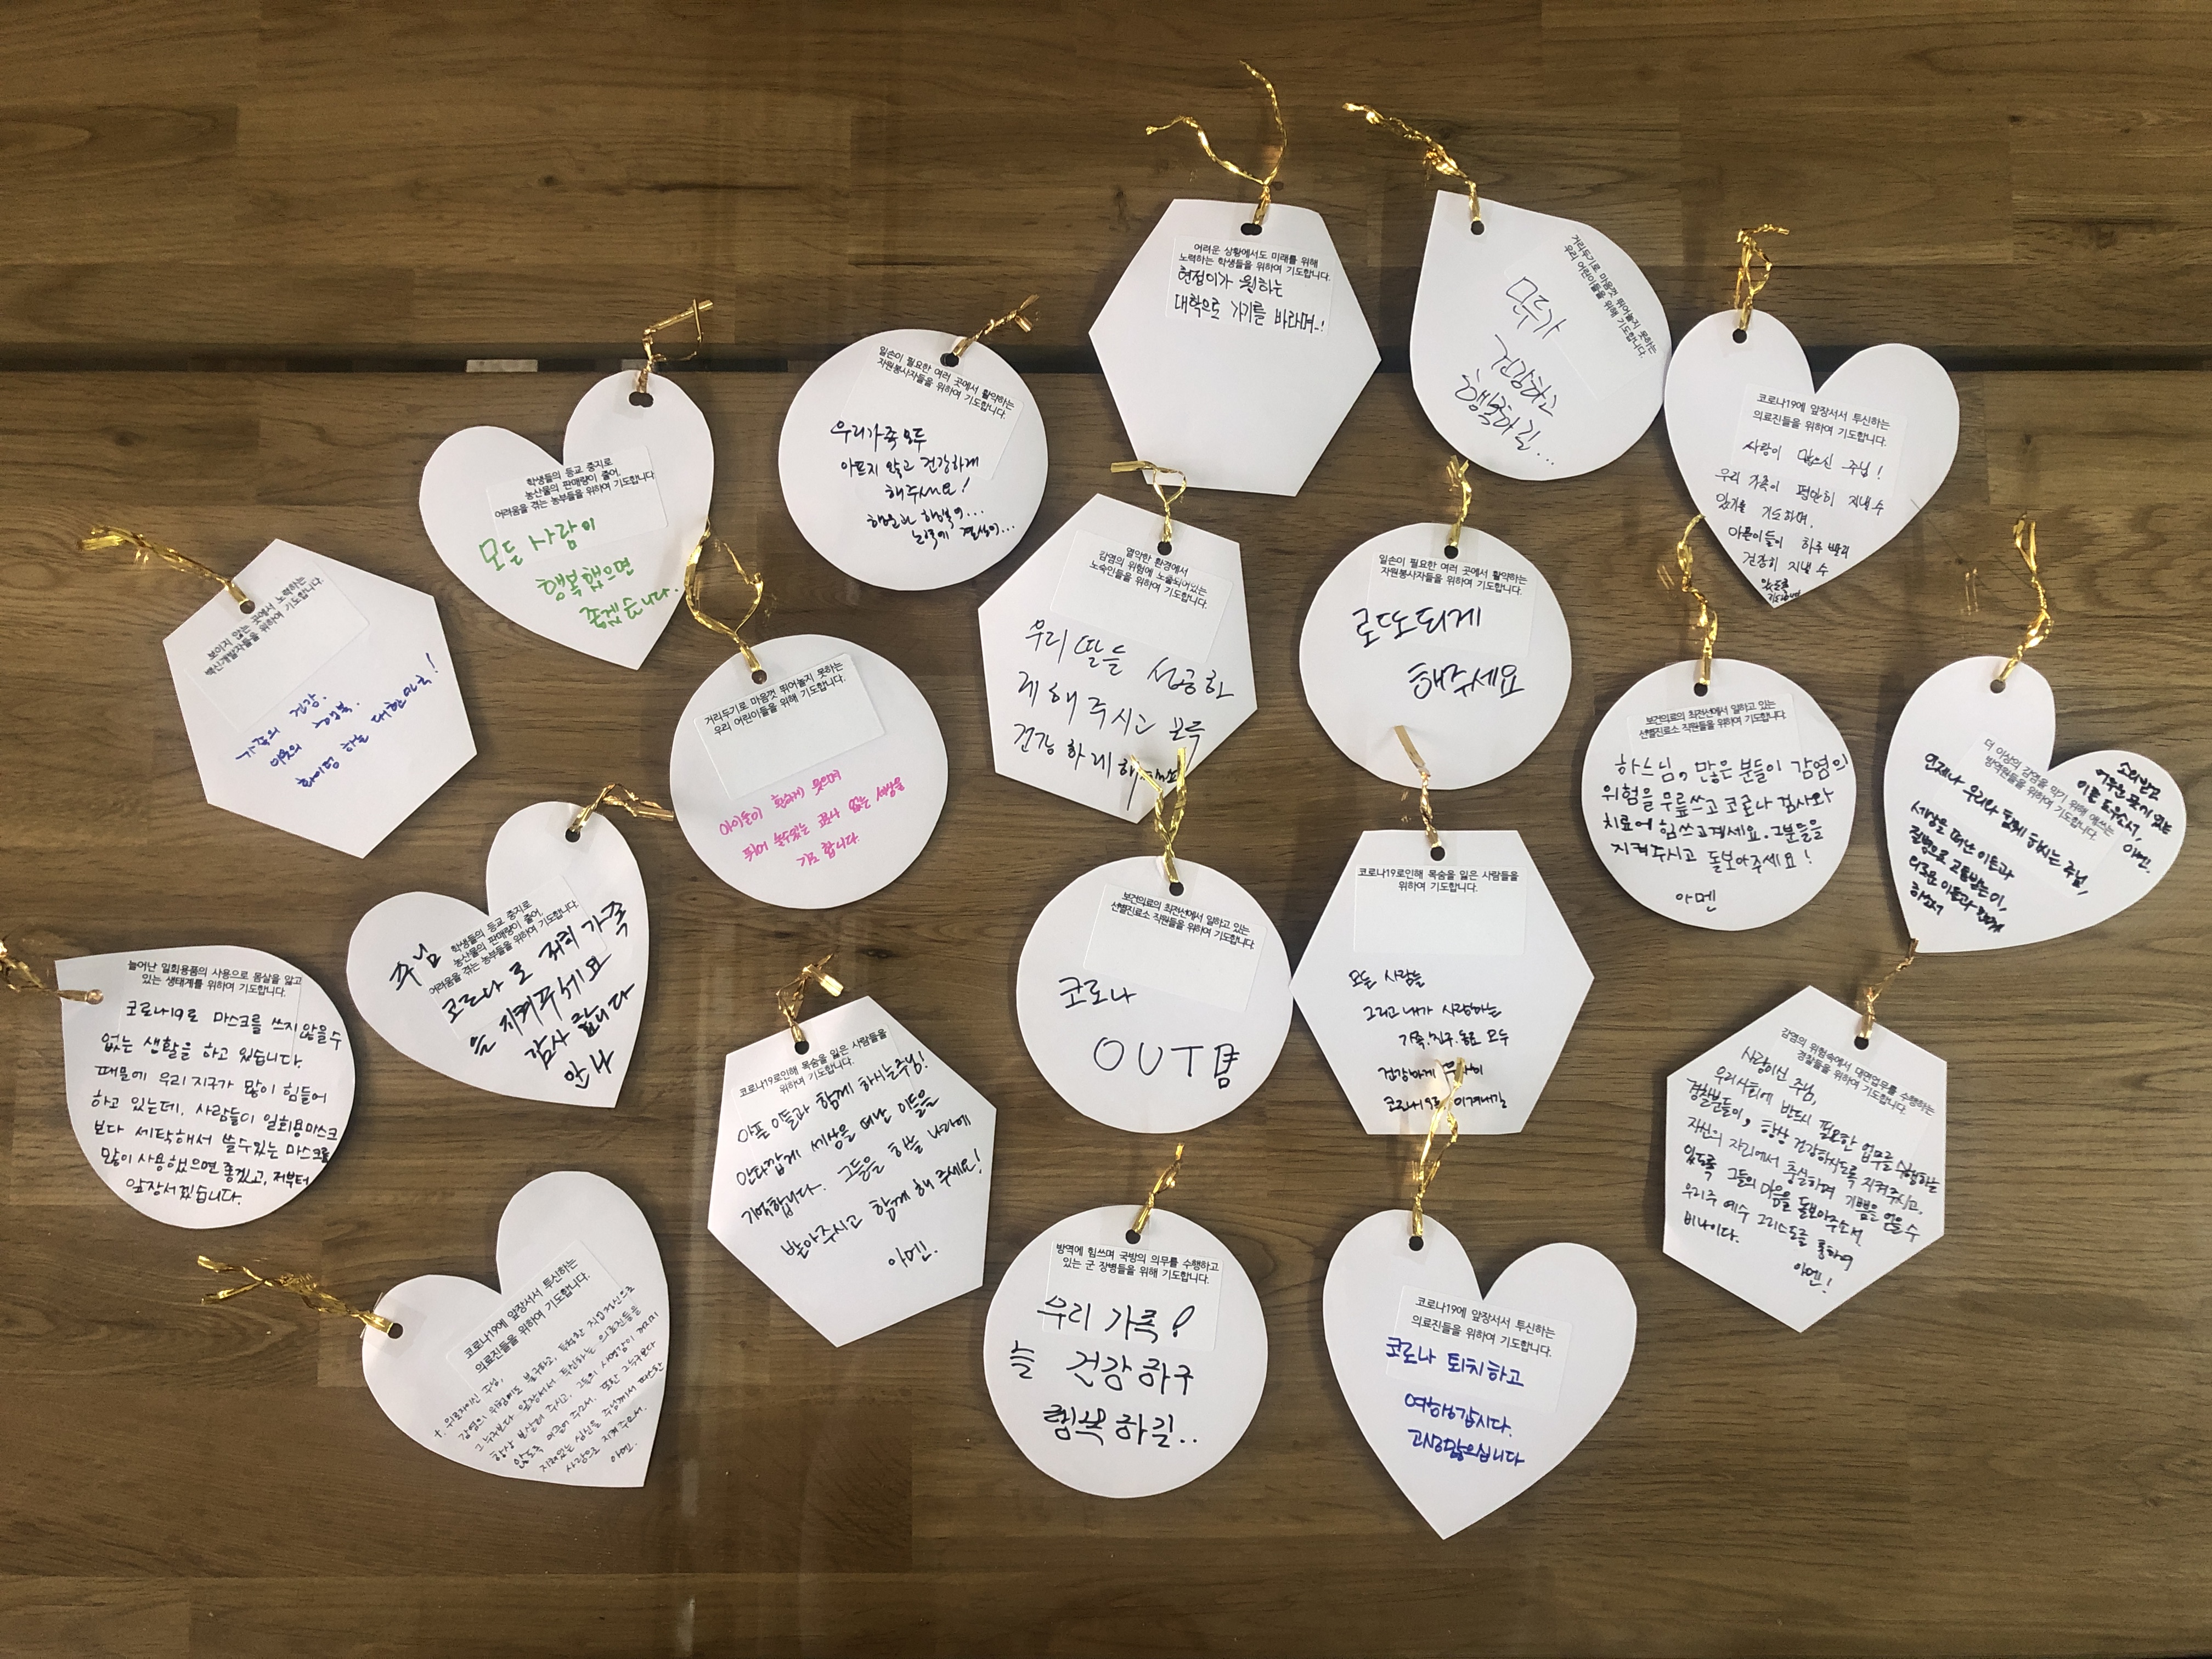 어려운 상황에서도 미래를 위해
노력하는 학생들을 위하여 기도합니다.
현정이가 원하는
대학으로 가기를 바라며~!
거리두기로 마음껏 뛰어놀지 못하는
우리 어린이들을 위해 기도합니다.
모두가
건강하고
행복하길...
코로나19에 앞장서서 투신하는
의료진들을 위하여 기도합니다.
사랑이 많으신 주님!
우리 가족이 평안히 지낼 수
있기를 기도하며,
아픈이들이 하루 빨리
건강히 지낼 수
있도록
기도합니다
일손이 필요한 여러 곳에서 활약하는
자원봉사자들을 위하여 기도합니다.
우리가족 모두
아프지 않고 건강하게
해주세요!
행운과 행복이...
노력에 결실이...
학생들의 등교 중지로
농산물의 판매량이 줄어,
어려움을 겪는 농부들을 위하여 기도합니다.
모든 사람이
행복했으면
좋겠습니다.
보이지 않는 곳에서 노력하는
백신개발자들을 위하여 기도합니다.
가족의 건강.
이웃의 행복.
화이팅 하는 대한민국!
거리두기로 마음껏 뛰어놀지 못하는
우리 어린이들을 위해 기도합니다.
아이들이 환하게 웃으며
뛰어 놀수있는 코로나 없는 세상을
기도 합니다.
열악한 환경에서
감염의 위험에 노출되어있는
노숙인들을 위하여 기도합니다.
우리 딸들 성공하
게 해 주시고 모두
건강 하게
일손이 필요한 여러 곳에서 활약하는
자원봉사자들을 위하여 기도합니다.
로또되게
해주세요
보건의료의 최전선에서 일하고 있는
선별진료소 직원들을 위하여 기도합니다.
하느님, 많은 분들이 감염의
위험을 무릎쓰고 코로나 검사와
치료에 힘쓰고계세요. 그분들을
지켜주시고 돌보아주세요!
아멘
더 이상의 감염을 막기 위해 애쓰는
방역원들을 위하여 기도합니다.
언제나 우리와 함께 하시는 주님,
세상을 떠난 이들과
질병으로 고통받는 이,
외로운 이들과 함께
하소서
소외받고
어두운 곳에 있는
이를 도우소서,
아멘.
학생들의 등교 중지로
농산물의 판매량이 줄어,
어려움을 겪는 농부들을 위하여 기도합니다.
주님
코로나 로 저희 가족
을 지켜주세요
감사 합니다
안나
늘어난 일회용품의 사용으로 몸살을 앓고
있는 생태계를 위하여 기도합니다.
코로나19로 마스크를 쓰지 않을수
없는 생활을 하고 있습니다.
때문에 우리 지구가 많이 힘들어
하고 있는데, 사람들이 일회용마스크
보다 세탁해서 쓸수있는 마스크를
많이 사용했으면 좋겠고, 저부터
앞장서겠습니다.
코로나19로인해 목숨을 잃은 사람들을
위하여 기도합니다.
아픈 이들과 함께 하시는 주님!
안타깝게 세상을 떠난 이들을
기억합니다. 그들을 하늘 나라에
받아주시고 함께 해 주세요!
아멘.
보건의료의 최전선에서 일하고 있는
선별진료소 직원들을 위하여 기도합니다.
코로나
OUT 됨
코로나19로인해 목숨을 잃은 사람들을
위하여 기도합니다.
모든 사람들
그리고 내가 사랑하는
가족.친구.동료 모두
건강하게
코로나19를 이겨내길
감염의 위험속에서 대면업무를 수행하는
경찰들을 위하여 기도합니다.
사랑이신 주님,
우리사회에 반드시 필요한 업무를 수행하는
경찰분들이, 항상 건강하시도록 지켜주시고,
자신의 자리에서 충실하며 기쁨을 얻을 수
있도록 그들의 마음을 돌보아주소서.
우리주 예수 그리스도를 통하여
비나이다.
아멘!
코로나19에 앞장서서 투신하는
의료진들을 위하여 기도합니다.
+. 위로자이신 주님,
감염의 위험에도 불구하고, 투철한 직업정신으로
그 누구보다 앞장서서 투신하는 의료진들을
항상 보살펴 주시고, 그들의 사명감이 꺼지지
않도록 이끌어 주소서. 또한 그 누구보다
지쳐있는 심신을 주님께서 따스한
사랑으로 지켜 주소서.
아멘.
방역에 힘쓰며 국방의 의무를 수행하고
있는 군 장병들을 위해 기도합니다.
우리 가족!
늘 건강 하구
행복 하길..
코로나19에 앞장서서 투신하는
의료진들을 위하여 기도합니다.
코로나 퇴치하고
여행갑시다.
고생많으십니다